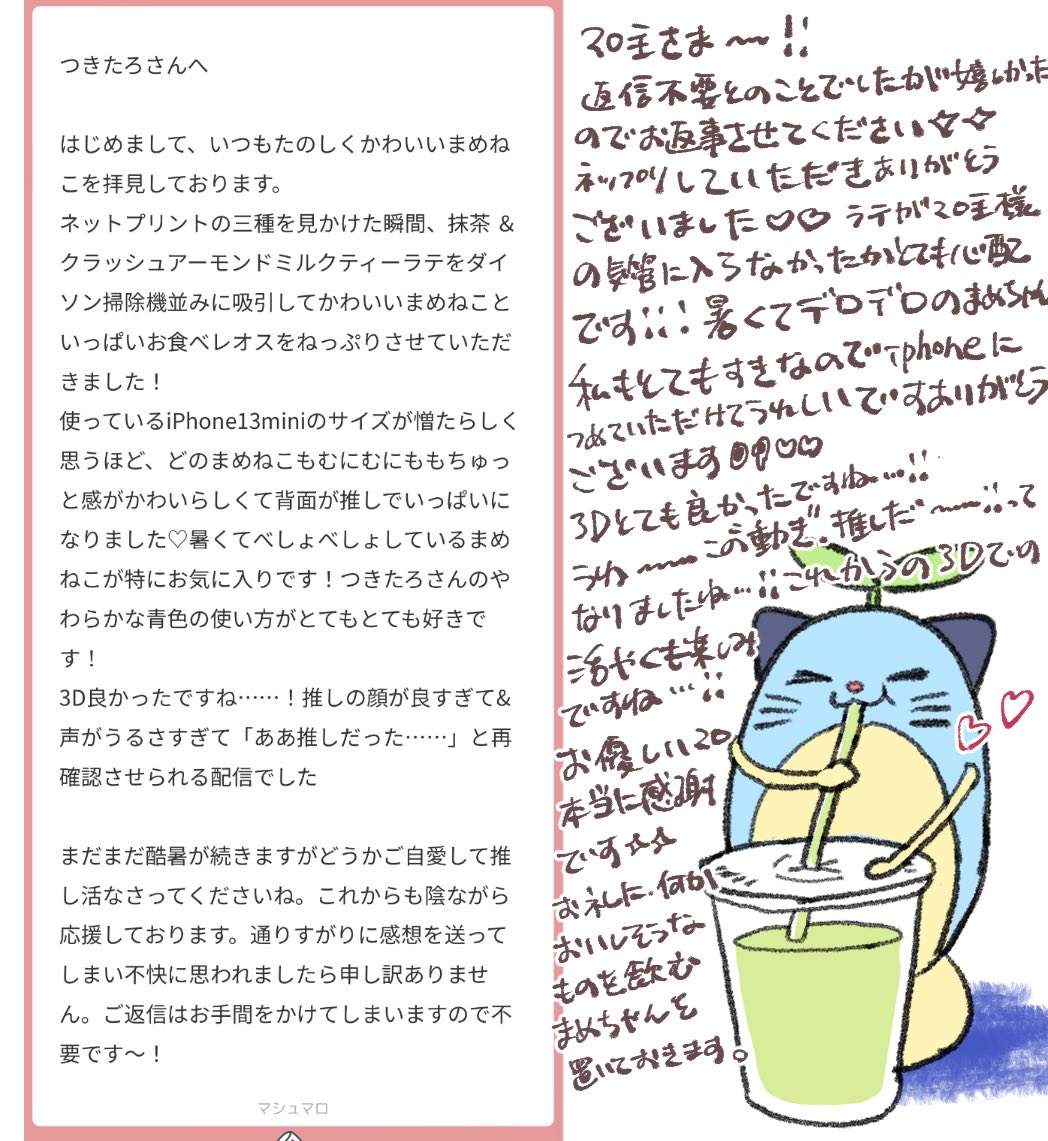 つきたろさんへ
はじめまして、いつもたのしくかわいいまめね
こを拝見しております。
ネットプリントの三種を見かけた瞬間、抹茶 &
クラッシュアーモンドミルクティーラテをダイ
ソン掃除機並みに吸引してかわいいまめねこと
いっぱいお食べレオスをねっぷりさせていただ
きました！
使っているiPhone13miniのサイズが憎たらしく
思うほど、どのまめねこもむにむにももちゅっ
と感がかわいらしくて背面が推しでいっぱいに
なりました♡暑くてべしょべしょしているまめ
ねこが特にお気に入りです！つきたろさんのや
わらかな青色の使い方がとてもとても好きで
す！
3D良かったですね……！推しの顔が良すぎて&
声がうるさすぎて「ああ推しだった……」と再
確認させられる配信でした
まだまだ酷暑が続きますがどうかご自愛して推
し活なさってくださいね。これからも陰ながら
応援しております。通りすがりに感想を送って
しまい不快に思われましたら申し訳ありませ
ん。ご返信はお手間をかけてしまいますので不
要です〜！
マシュマロ
マロ主さま〜!!
返信不要とのことでしたが嬉しかった
のでお返事させてください☆☆
ネップリしていただきありがとう
ございました♡♡ ラテがマロ主様
の気管に入らなかったかとても心配
です!!! 暑くてデロデロのまめちゃん
私もとてもすきなのでiphoneに
つめていただけてうれしいですありがとう
ございます!!♡♡
3Dとても良かったですね…!!
うわ〜この動き、推しだ〜!!って
なりましたね…!!これからの3Dでの
活やくも楽しみ
ですね…!!
お優しいマロ
本当に感謝
です☆☆
お礼した、何か
おいしそうな
ものを飲む
まめちゃんを
置いておきます。